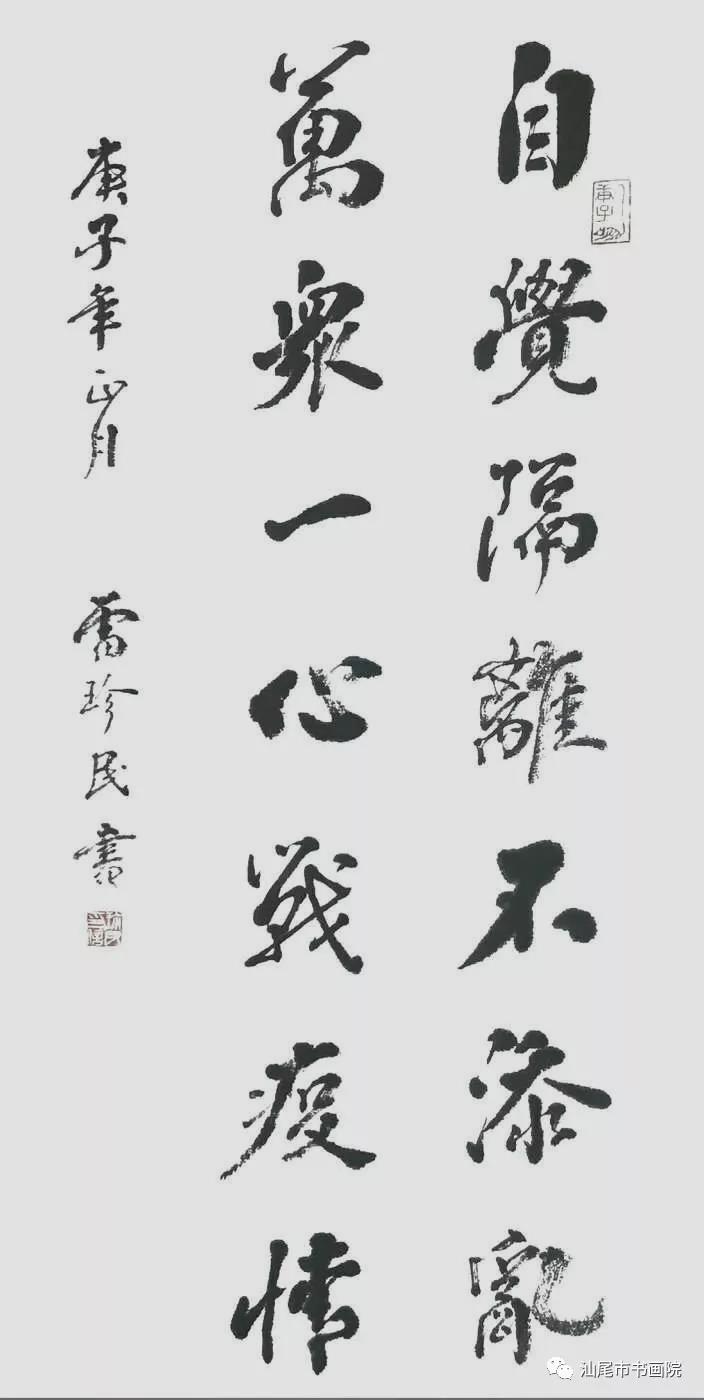 自覺隔離不添亂
萬眾一心戰疫情
庚子年正月 雷珍民書
汕尾市书画院